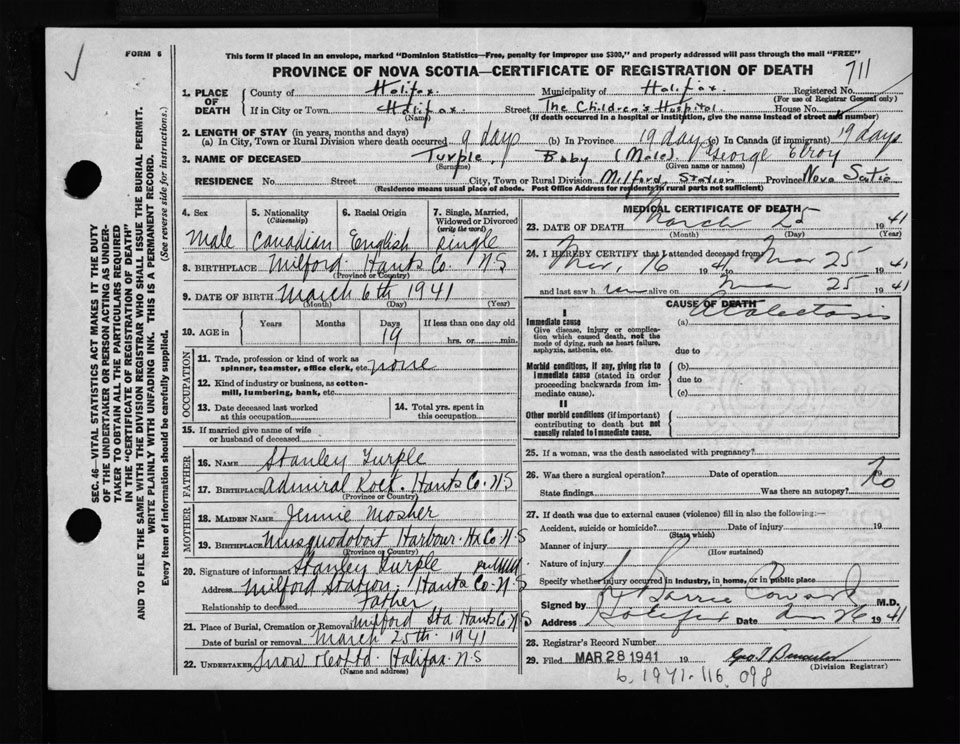 FORM 6
This form if placed in an envelope, marked "Dominion Statistics—Free, penalty for improper use $300," and properly addressed will pass through the mail "FREE"
PROVINCE OF NOVA SCOTIA—CERTIFICATE OF REGISTRATION OF DEATH
711
1. PLACE OF DEATH
County of Halifax. Municipality of Halifax. Registered No.
(For use of Registrar General only)
If in City or Town Halifax. Street The Children's Hospital. House No.
(Name) (If death occurred in a hospital or institution, give the name instead of street and number)
2. LENGTH OF STAY (in years, months and days)
(a) In City, Town or Rural Division where death occurred 9 days (b) In Province 19 days (c) In Canada (if immigrant) 19 days
3. NAME OF DECEASED Turple, Baby (Male). George Elroy
(Surname) (Given name or names)
RESIDENCE No. Street City, Town or Rural Division Milford Station Province Nova Scotia
(Residence means usual place of abode. Post Office Address for residents in rural parts not sufficient)
4. Sex
Male
5. Nationality (Citizenship)
Canadian
6. Racial Origin
English
7. Single, Married, Widowed or Divorced (write the word)
single
8. BIRTHPLACE Milford Hants Co. N-S
(Province or Country)
9. DATE OF BIRTH March 6th 1941
(Month) (Day) (Year)
10. AGE in Years Months Days If less than one day old
19 hrs. or min.
OCCUPATION
11. Trade, profession or kind of work as spinner, teamster, office clerk, etc. none
12. Kind of industry or business, as cotton-mill, lumbering, bank, etc.
13. Date deceased last worked at this occupation
14. Total yrs. spent in this occupation.
15. If married give name of wife or husband of deceased
FATHER
16. NAME Stanley Turple
17. BIRTHPLACE Admiral Rock. Hants Co. N-S
(Province or Country)
MOTHER
18. MAIDEN NAME Jennie Mosher
19. BIRTHPLACE Musquodoboit Harbour. Hx Co. N-S
(Province or Country)
20. Signature of informant Stanley Turple
Address Milford Station. Hants Co. N-S
Relationship to deceased Father
21. Place of Burial, Cremation or Removal Milford Sta Hants Co N-S
Date of burial or removal March 25th 1941
22. UNDERTAKER Snow & Co Ltd. Halifax. N-S
(Name and address)
MEDICAL CERTIFICATE OF DEATH
23. DATE OF DEATH March 25 1941
(Month) (Day) (Year)
24. I HEREBY CERTIFY that I attended deceased from
Mar. 16 1941 to Mar 25 1941
and last saw him alive on Mar 25 1941
CAUSE OF DEATH
I
Immediate cause
Give disease, injury or complication which caused death, not the mode of dying, such as heart failure, asphyxia, asthenia, etc.
(a) Atelectasis
due to
Morbid conditions, if any, giving rise to immediate cause (stated in order proceeding backwards from immediate cause).
(b)
due to
(c)
II
Other morbid conditions (if important) contributing to death but not causally related to immediate cause.
25. If a woman, was the death associated with pregnancy?
26. Was there a surgical operation? Date of operation 19
State findings Was there an autopsy? No
27. If death was due to external causes (violence) fill in also the following:—
Accident, suicide or homicide? Date of injury 19
(State which)
Manner of injury
(How sustained)
Nature of injury
Specify whether injury occurred in industry, in home, or in public place
Signed by N Barrie Coward M.D.
Address Halifax Date Mar 26 1941
28. Registrar's Record Number
29. Filed MAR 28 1941 19
(Division Registrar)
b. 1941-116 098
SEC. 46—VITAL STATISTICS ACT MAKES IT THE DUTY OF THE UNDERTAKER OR PERSON ACTING AS UNDERTAKER TO OBTAIN ALL THE PARTICULARS REQUIRED IN THE "CERTIFICATE OF REGISTRATION OF DEATH" AND TO FILE THE SAME WITH THE DIVISION REGISTRAR WHO SHALL ISSUE THE BURIAL PERMIT.
WRITE PLAINLY WITH UNFADING INK. THIS IS A PERMANENT RECORD.
Every item of information should be carefully supplied. (See reverse side for instructions.)